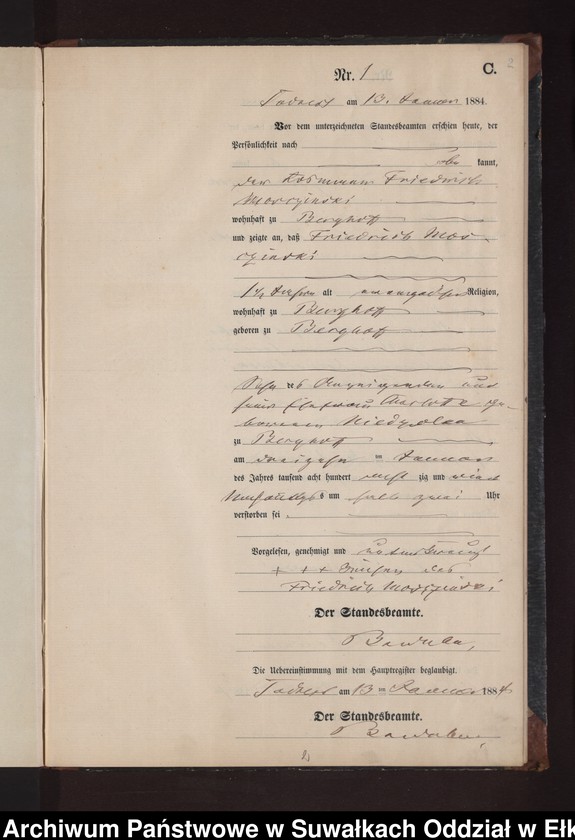 Nr. 1 C. 2
am 13. Januar 1884.
Vor dem unterzeichneten Standesbeamten erschien heute, der
Persönlichkeit nach
kannt,
der Losmann Friedrich
Morczinski
wohnhaft zu Berghoff
und zeigte an, daß Friedrich Mor-
czinski
alt Religion,
wohnhaft zu Berghoff
geboren zu Berghoff
Sohn des Anzeigenden und
seiner Ehefrau Charlotte ge-
borenen
zu Berghoff
am dreizehn ten Januar
des Jahres tausend acht hundert acht zig und vier
Nachmittags um halb zwei Uhr
verstorben sei.
Vorgelesen, genehmigt und
+ + + des
Friedrich Morczinski
Der Standesbeamte.
Die Uebereinstimmung mit dem Hauptregister beglaubigt.
am 13 ten Januar 1884
Der Standesbeamte.
Archiwum Państwowe w Suwałkach Oddział w Ełk